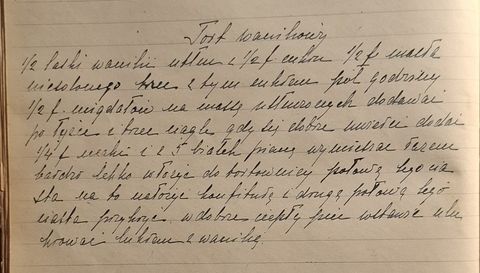 Tort waniliowy
1/2 laski wanilii utłuc z 1/2 f cukru 1/2 f masła
niesolonego trzeć z tym cukrem pół godziny
1/2 f migdałów na masę utłuczonych dodawać
po łyżce i trzeć ciągle gdy się dobrze umiesi dodać
1/4 f mąki i z 5 białek pianę wymieszać razem
bardzo lekko włożyć do tortownicy połowę tego cia
sta na to nałożyć konfiturę i drugą połową tego
ciasta przykryć w dobrze ciepły piec wstawić lu
krować lukrem z wanilią.